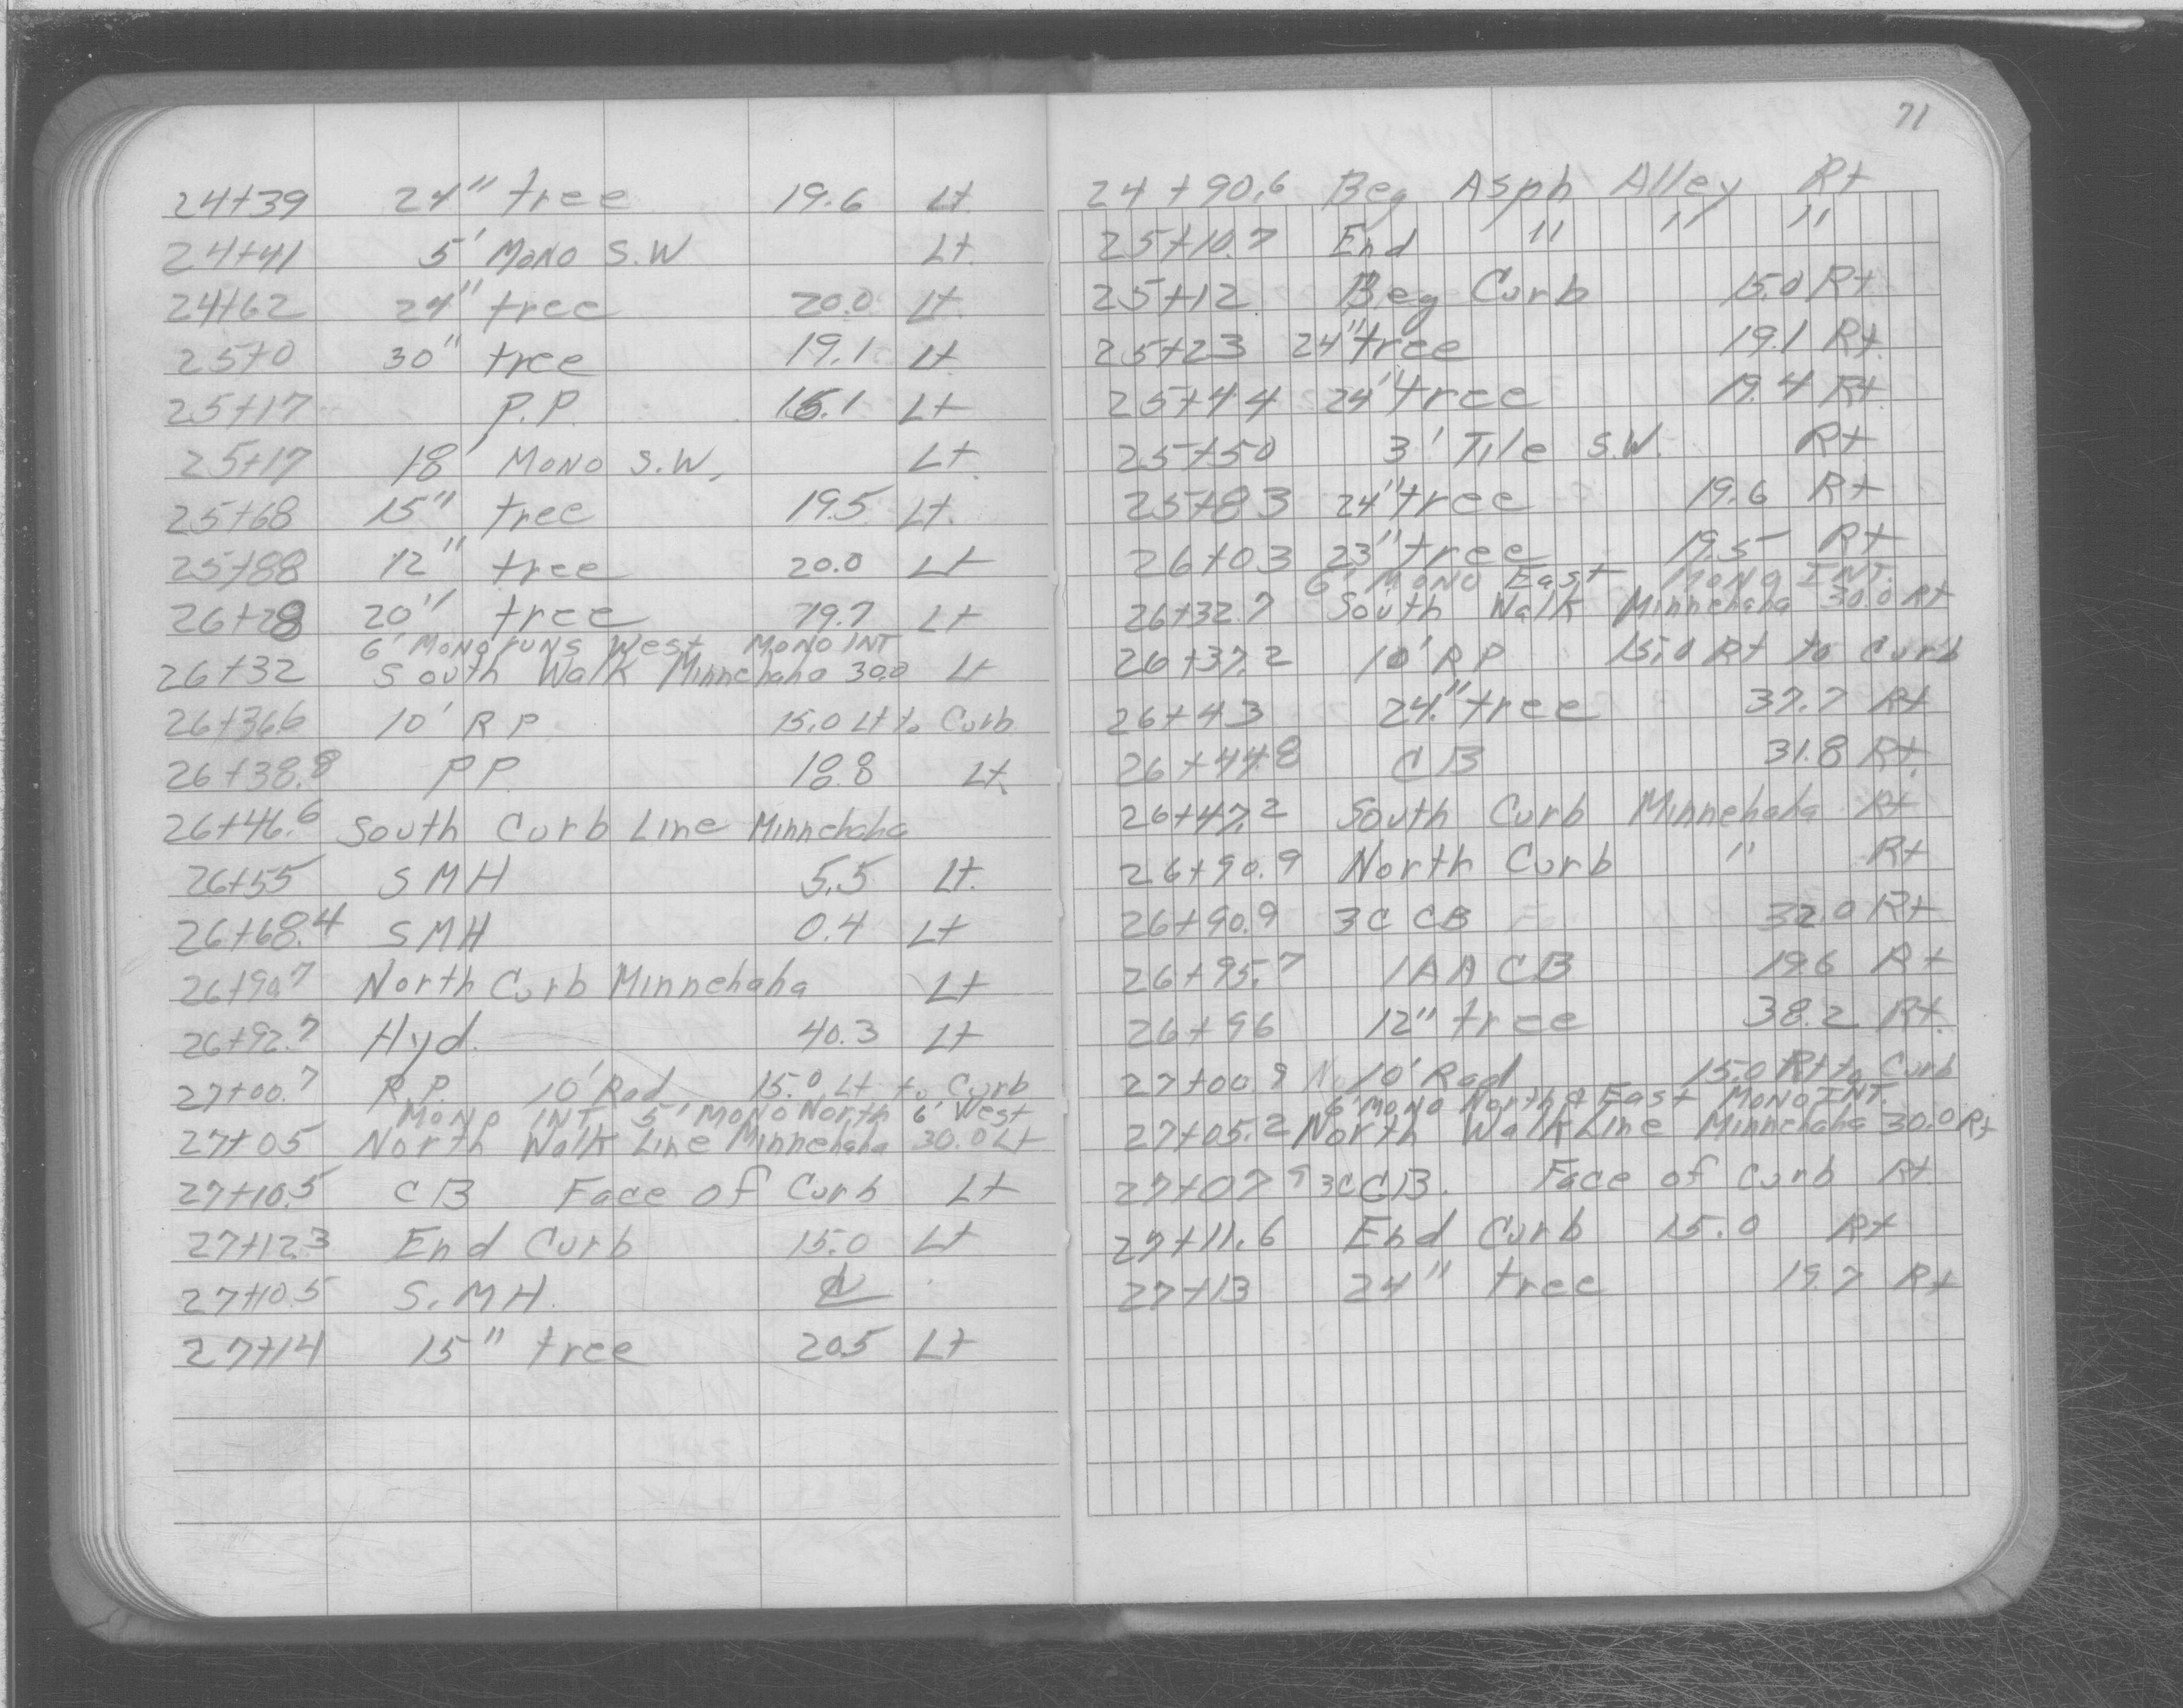 24+39 24" tree 19.6 Lt
24+41 5' Mono S.W Lt.
24+62 24" tree 20.0 Lt.
25+0 30" tree 19.1 Lt
25+17 P.P. 15.1 Lt
25+17 18' Mono S.W. Lt.
25+68 15" tree 19.5 Lt.
25+88 12" tree 20.0 Lt
26+28 20" tree 19.7 Lt
6' Mono runs West Mono INT
26+32 South Walk Minnehaha 30.0 Lt
26+36.6 10' R P 15.0 Lt to Curb
26+38.8 PP. 18.8 Lt.
26+46.6 South Curb Line Minnehaha
26+55 SMH 5.5 Lt.
26+68.4 SMH 0.4 Lt
26+90.7 North Curb Minnehaha Lt
26+92.7 Hyd. 40.3 Lt
27+00.7 R.P. 10' Rad 15.0 Lt to Curb
Mono INT 5' Mono North 6' West
27+05 North Walk Line Minnehaha 30.0 Lt
27+10.5 CB Face of Curb Lt
27+12.3 End Curb 15.0 Lt
27+10.5 S.MH. ℄
27+14 15" tree 20.5 Lt
71
24+90.6 Beg Asph Alley Rt
25+10.7 End " " "
25+12 Beg Curb 15.0 Rt
25+23 24" tree 19.1 Rt.
25+44 24" tree 19.4 Rt.
25+50 3' Tile S.W. Rt
25+83 24" tree 19.6 Rt
26+03 23" tree 19.5 Rt
6' Mono East Mono INT.
26+32.7 South Walk Minnehaha 30.0 Rt
26+37.2 10' RP 15.0 Rt to Curb
26+43 24" tree 37.7 Rt
26+44.8 CB 31.8 Rt.
26+47.2 South Curb Minnehaha Rt
26+90.9 North Curb " Rt
26+90.9 3C CB 32.0 Rt
26+95.7 1AA CB 19.6 Rt
26+96 12" tree 38.2 Rt.
27+00.9 10' Rad 15.0 Rt to Curb
6' Mono North & East Mono INT.
27+05.2 North Walk Line Minnehaha 30.0 Rt
27+07.9 3C CB. Face of Curb Rt
27+11.6 End Curb 15.0 Rt
27+13 24" tree 19.7 Rt